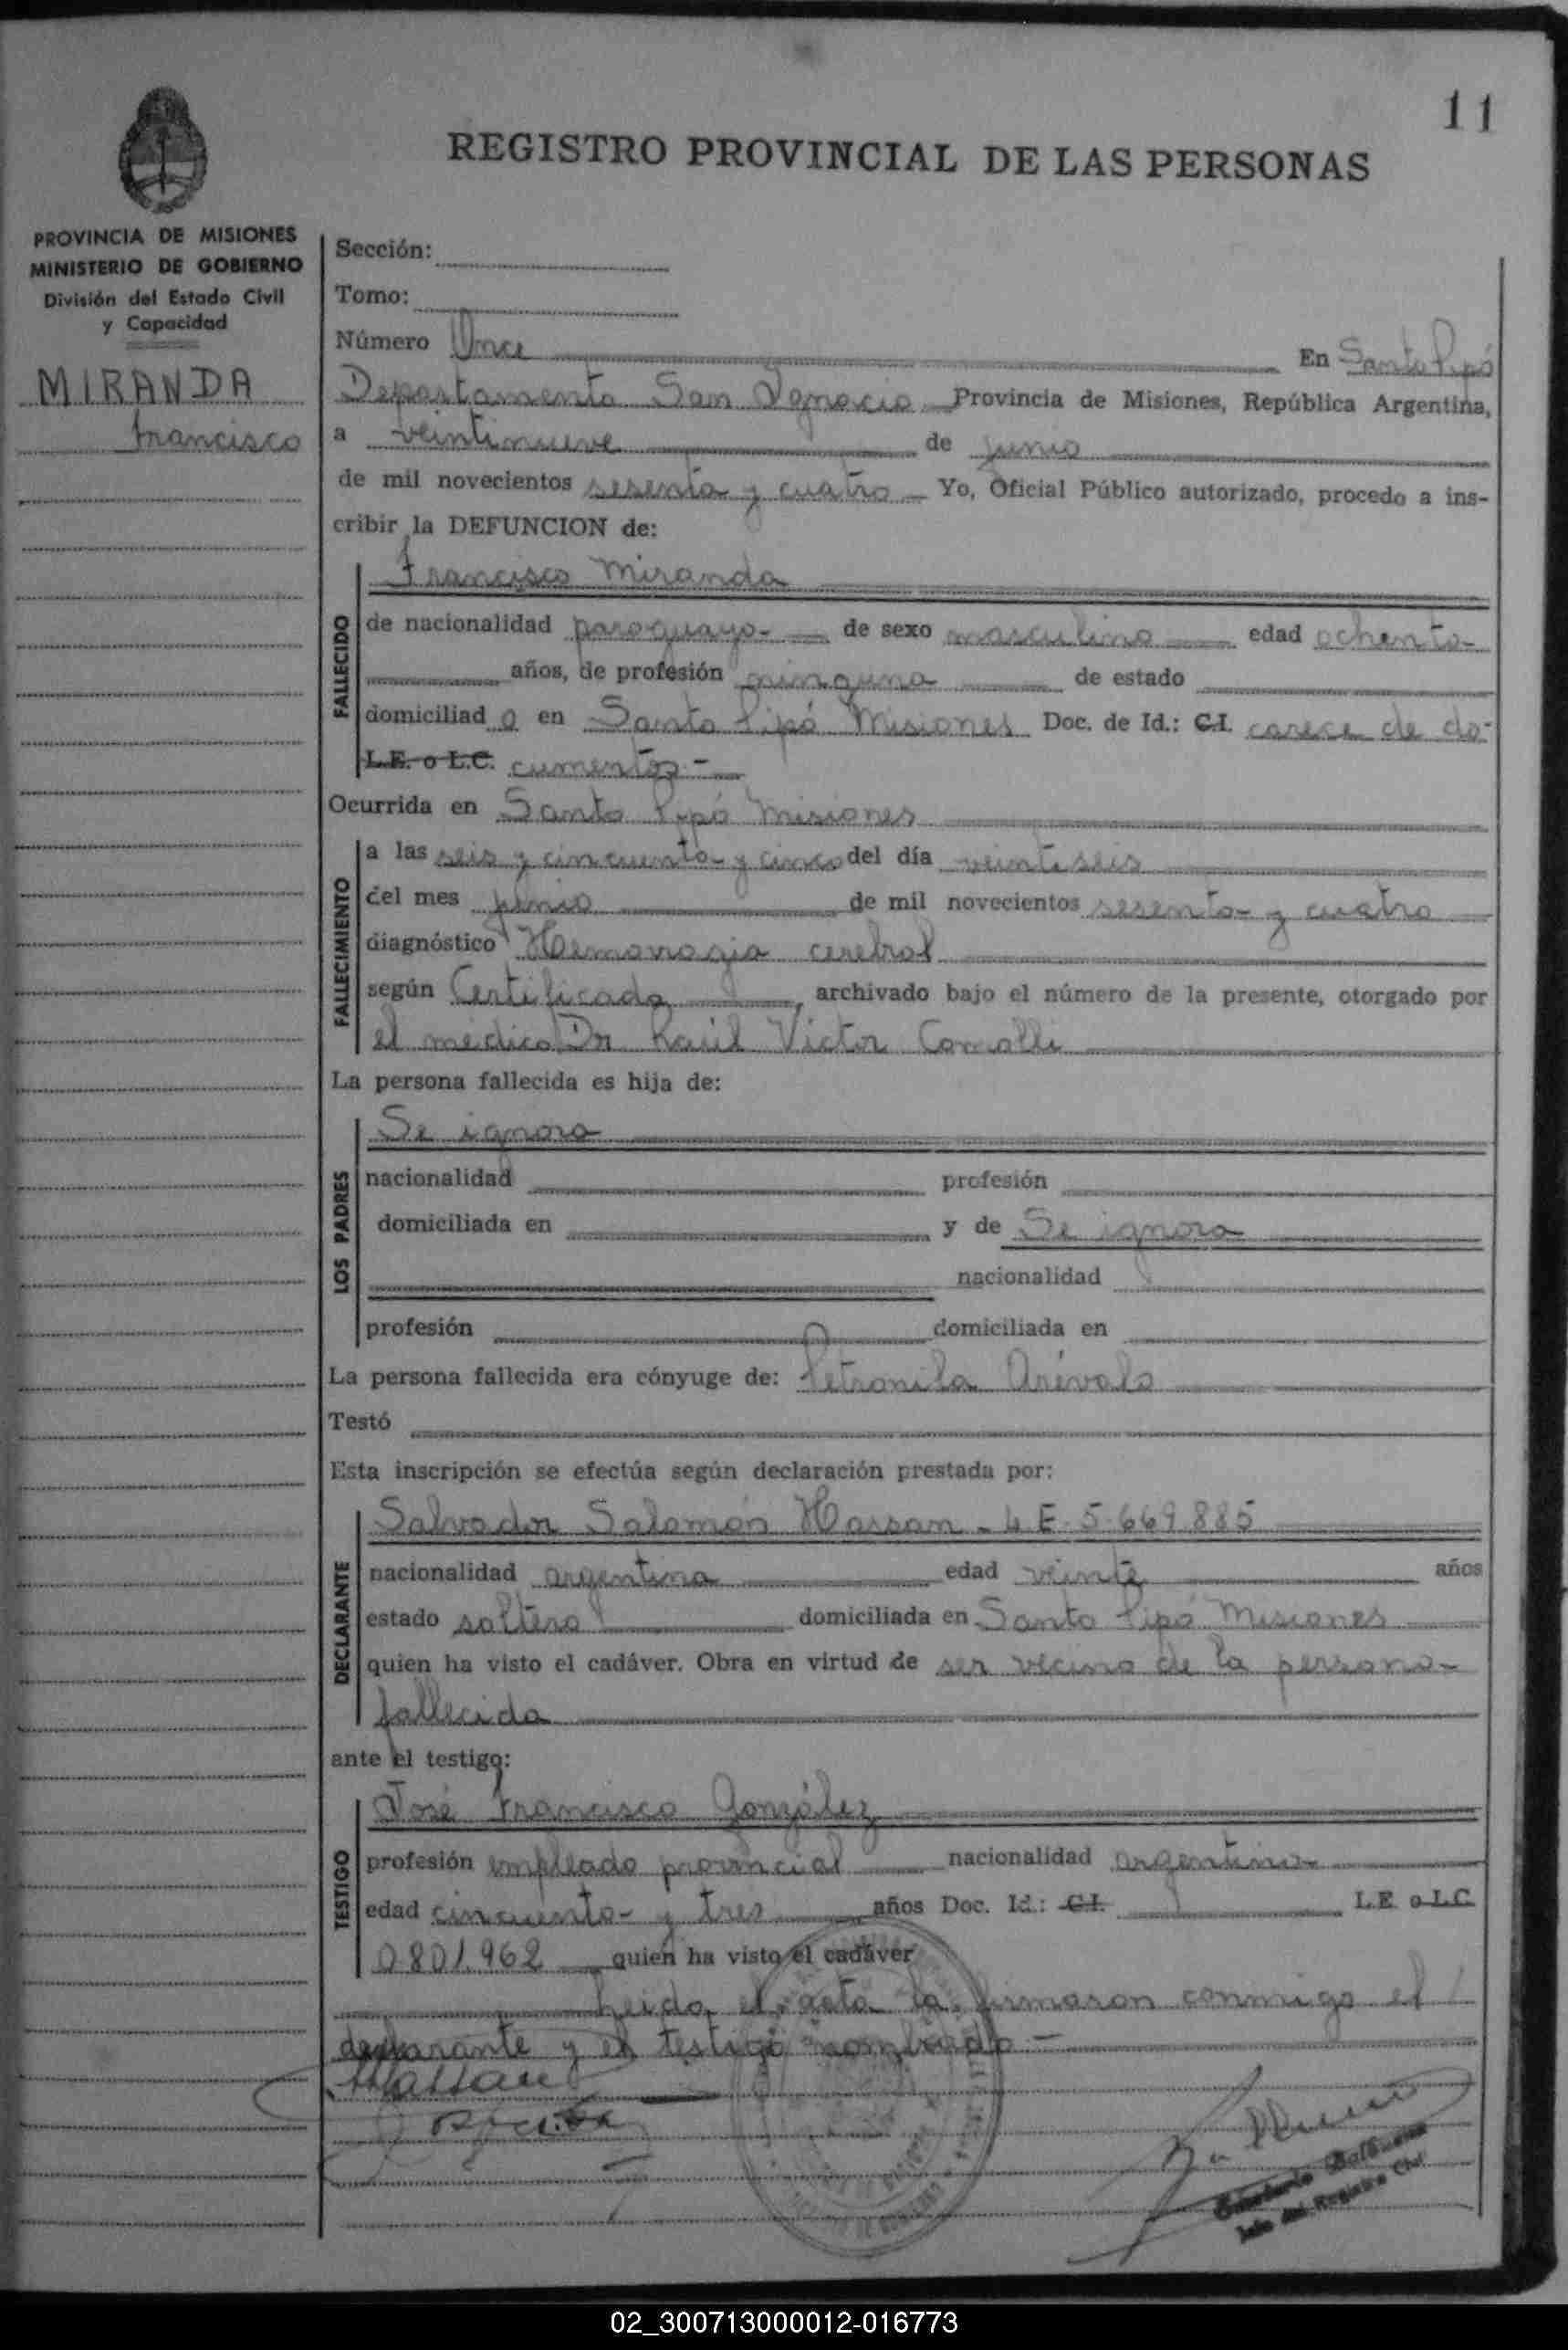 11
REGISTRO PROVINCIAL DE LAS PERSONAS
PROVINCIA DE MISIONES
MINISTERIO DE GOBIERNO
División del Estado Civil
y Capacidad
MIRANDA
Francisco
Sección:
Tomo:
Número Once En Santo Pipó
Departamento San Ignacio Provincia de Misiones, República Argentina,
a veintinueve de junio
de mil novecientos sesenta y cuatro Yo, Oficial Público autorizado, procedo a ins-
cribir la DEFUNCION de:
Francisco Miranda
FALLECIDO
de nacionalidad paraguayo- de sexo masculino edad ochenta-
años, de profesión ninguna de estado
domiciliad o en Santo Pipó Misiones Doc. de Id.: C.I. carece de do-
L.E. o L.C. cumentos-
Ocurrida en Santo Pipó Misiones
FALLECIMIENTO
a las seis y cincuenta y cinco del día veintiseis
del mes junio de mil novecientos sesenta y cuatro
diagnóstico Hemorragia cerebral
según Certificado, archivado bajo el número de la presente, otorgado por
el médico Dr Raúl Victor
La persona fallecida es hija de:
LOS PADRES
Se ignora
nacionalidad profesión
domiciliada en y de Se ignora
nacionalidad
profesión domiciliada en
La persona fallecida era cónyuge de: Petronila Arévalo
Testó
Esta inscripción se efectúa según declaración prestada por:
DECLARANTE
Salvador Salomón Hassan - L.E. 5.669.885
nacionalidad argentina edad veinte años
estado soltero domiciliada en Santo Pipó Misiones
quien ha visto el cadáver. Obra en virtud de ser vecino de la persona-
fallecida
ante el testigo:
TESTIGO
José Francisco González
profesión empleado provincial nacionalidad argentina
edad cincuenta y tres años Doc. Id.: C.I. L.E. o L.C.
0801.962 quien ha visto el cadáver
Leida el acta la firmaron conmigo el
declarante y el testigo nombrado-
Hassan
Balbuena
Jefe del Registro Civil
02_300713000012-016773